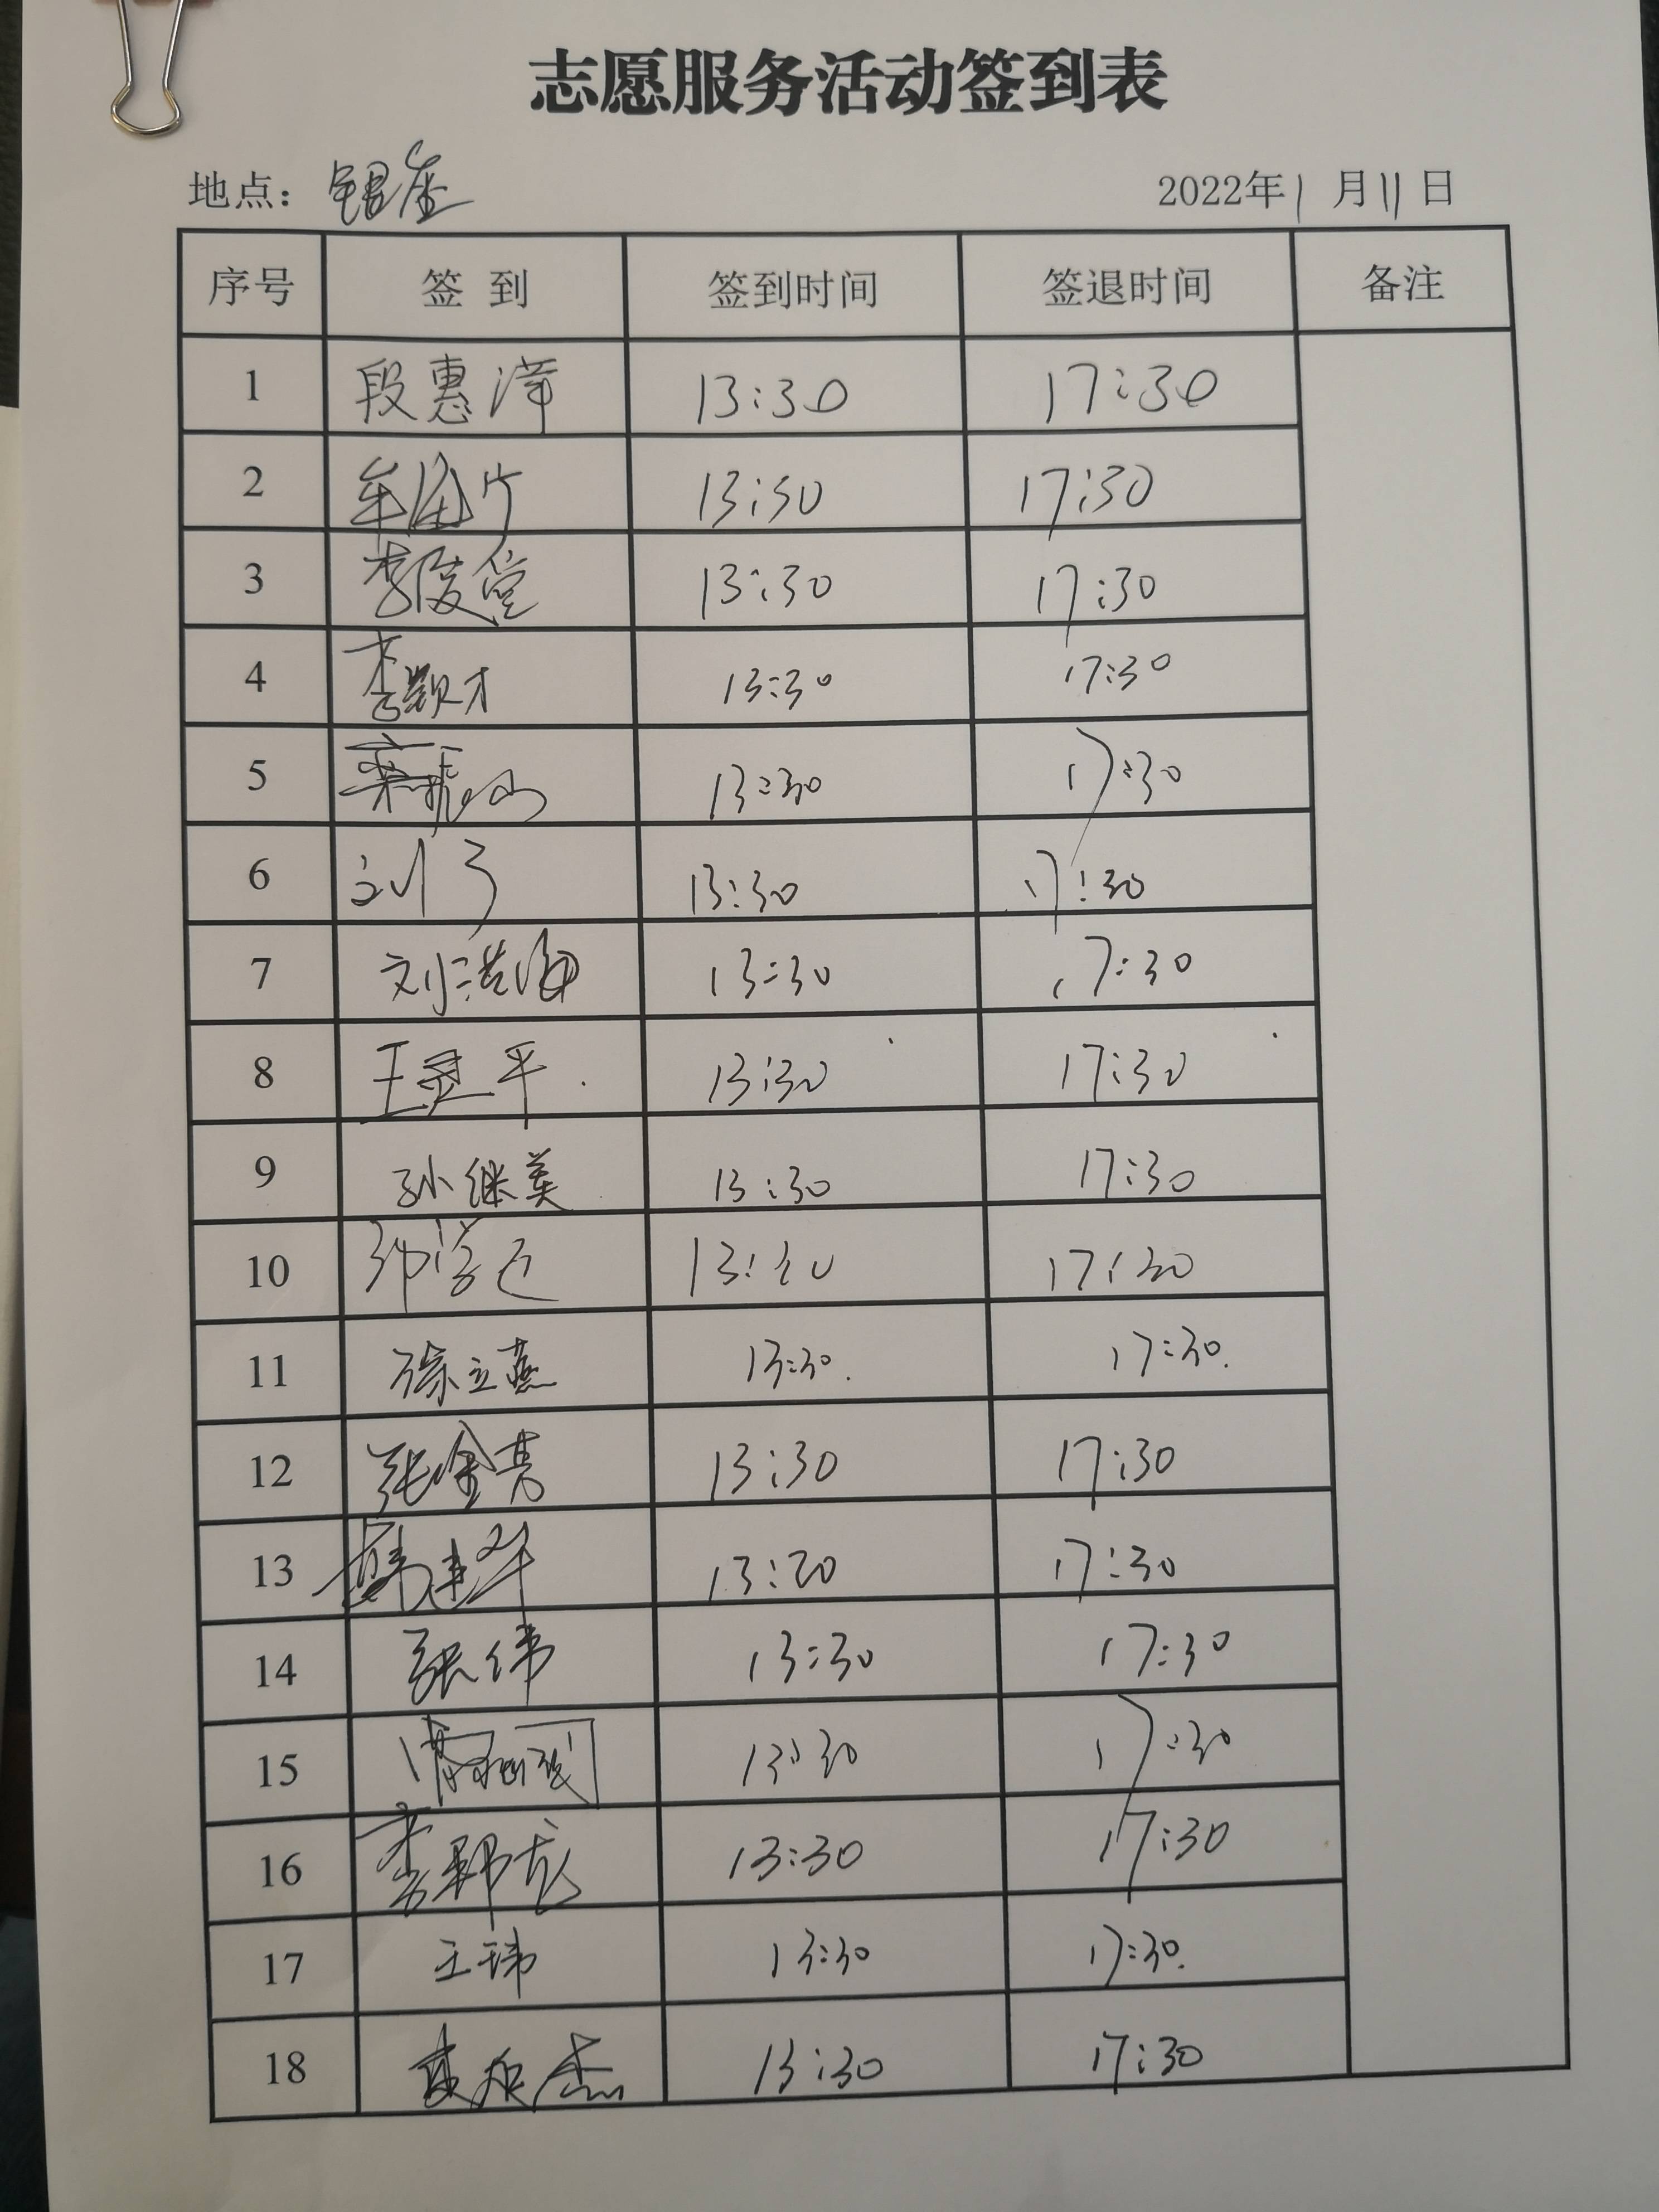 志愿服务活动签到表
地点: 银座 2022年1月11日
序号 签 到 签到时间 签退时间 备注
1 段惠泽 13:30 17:30
2 13:30 17:30
3 李俊莹 13:30 17:30
4 李凯才 13:30 17:30
5 13:30 17:30
6 13:30 17:30
7 刘洪海 13:30 17:30
8 王灵平 13:30 17:30
9 孙继美 13:30 17:30
10 13:30 17:30
11 徐立燕 13:30. 17:30.
12 张金芳 13:30 17:30
13 韩建华 13:20 17:30
14 张伟 13:30 17:30
15 13:30 17:30
16 17:30
13:30
17 王玮 13:30 17:30.
18 13:30 17:30